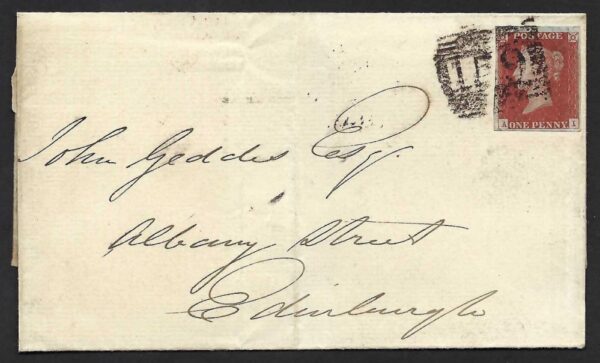 POSTAGE
A ONE PENNY I
John Geddes Esq.
Albany Street
Edinburgh